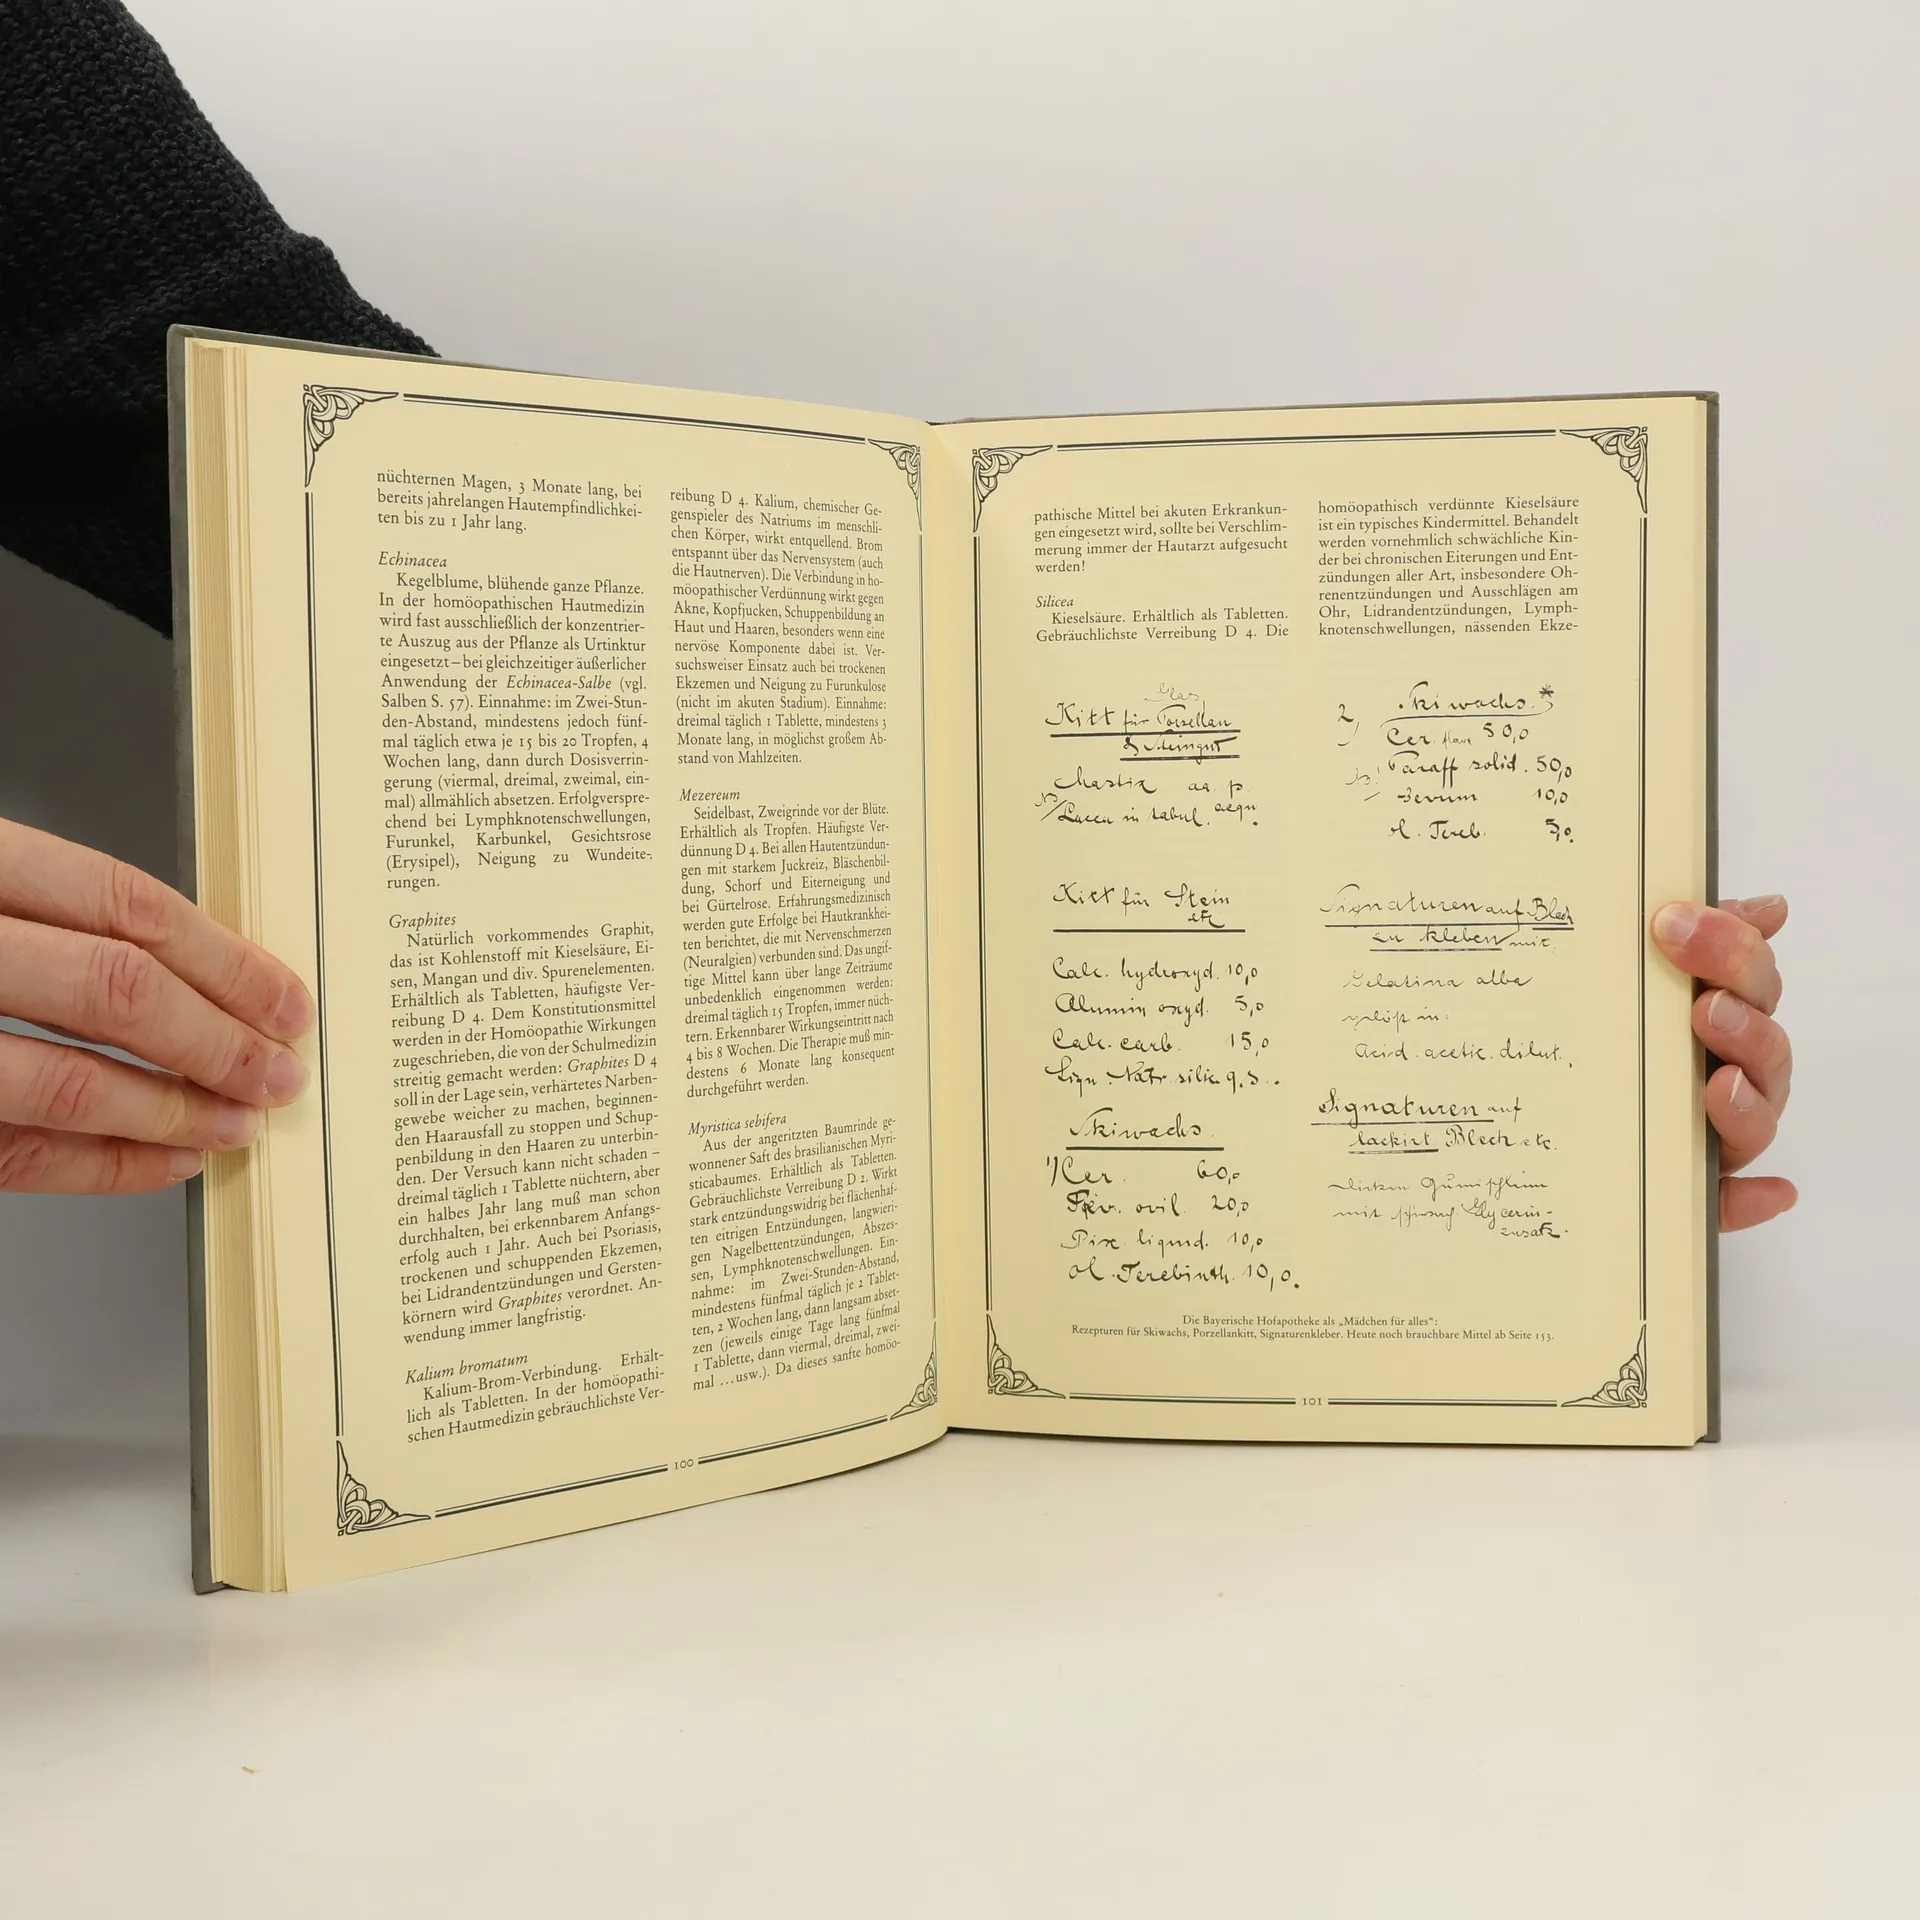 nüchternen Magen, 3 Monate lang, bei
bereits jahrelangen Hautempfindlichkei-
ten bis zu 1 Jahr lang.
Echinacea
Kegelblume, blühende ganze Pflanze.
In der homöopathischen Hautmedizin
wird fast ausschließlich der konzentrier-
te Auszug aus der Pflanze als Urtinktur
eingesetzt – bei gleichzeitiger äußerlicher
Anwendung der Echinacea-Salbe (vgl.
Salben S. 57). Einnahme: im Zwei-Stun-
den-Abstand, mindestens jedoch fünf-
mal täglich etwa je 15 bis 20 Tropfen, 4
Wochen lang, dann durch Dosisverrin-
gerung (viermal, dreimal, zweimal, ein-
mal) allmählich absetzen. Erfolgverspre-
chend bei Lymphknotenschwellungen,
Furunkel, Karbunkel, Gesichtsrose
(Erysipel), Neigung zu Wundeite-
rungen.
Graphites
Natürlich vorkommendes Graphit,
das ist Kohlenstoff mit Kieselsäure, Ei-
sen, Mangan und div. Spurenelementen.
Erhältlich als Tabletten, häufigste Ver-
reibung D 4. Dem Konstitutionsmittel
werden in der Homöopathie Wirkungen
zugeschrieben, die von der Schulmedizin
streitig gemacht werden: Graphites D 4
soll in der Lage sein, verhärtetes Narben-
gewebe weicher zu machen, beginnen-
den Haarausfall zu stoppen und Schup-
penbildung in den Haaren zu unterbin-
den. Der Versuch kann nicht schaden –
dreimal täglich 1 Tablette nüchtern, aber
ein halbes Jahr lang muß man schon
durchhalten, bei erkennbarem Anfangs-
erfolg auch 1 Jahr. Auch bei Psoriasis,
trockenen und schuppenden Ekzemen,
bei Lidrandentzündungen und Gersten-
körnern wird Graphites verordnet. An-
wendung immer langfristig.
Kalium bromatum
Kalium-Brom-Verbindung. Erhält-
lich als Tabletten. In der homöopathi-
schen Hautmedizin gebräuchlichste Ver-
reibung D 4. Kalium, chemischer Ge-
genspieler des Natriums im menschli-
chen Körper, wirkt entquellend. Brom
entspannt über das Nervensystem (auch
die Hautnerven). Die Verbindung in ho-
möopathischer Verdünnung wirkt gegen
Akne, Kopfjucken, Schuppenbildung an
Haut und Haaren, besonders wenn eine
nervöse Komponente dabei ist. Ver-
suchsweiser Einsatz auch bei trockenen
Ekzemen und Neigung zu Furunkulose
(nicht im akuten Stadium). Einnahme:
dreimal täglich 1 Tablette, mindestens 3
Monate lang, in möglichst großem Ab-
stand von Mahlzeiten.
Mezereum
Seidelbast, Zweigrinde vor der Blüte.
Erhältlich als Tropfen. Häufigste Ver-
dünnung D 4. Bei allen Hautentzündun-
gen mit starkem Juckreiz, Bläschenbil-
dung, Schorf und Eiterneigung und
bei Gürtelrose. Erfahrungsmedizinisch
werden gute Erfolge bei Hautkrankhei-
ten berichtet, die mit Nervenschmerzen
(Neuralgien) verbunden sind. Das ungif-
tige Mittel kann über lange Zeiträume
unbedenklich eingenommen werden:
dreimal täglich 15 Tropfen, immer nüch-
tern. Erkennbarer Wirkungseintritt nach
4 bis 8 Wochen. Die Therapie muß min-
destens 6 Monate lang konsequent
durchgeführt werden.
Myristica sebifera
Aus der angeritzten Baumrinde ge-
wonnener Saft des brasilianischen Myri-
sticabaumes. Erhältlich als Tabletten.
Gebräuchlichste Verreibung D 2. Wirkt
stark entzündungswidrig bei flächenhaf-
ten eitrigen Entzündungen, langwieri-
gen Nagelbettentzündungen, Abszes-
sen, Lymphknotenschwellungen. Ein-
nahme: im Zwei-Stunden-Abstand,
mindestens fünfmal täglich je 2 Tablet-
ten, 2 Wochen lang, dann langsam abset-
zen (jeweils einige Tage lang fünfmal
1 Tablette, dann viermal, dreimal, zwei-
mal ...usw.). Da dieses sanfte homöo-
100
pathische Mittel bei akuten Erkrankun-
gen eingesetzt wird, sollte bei Verschlim-
merung immer der Hautarzt aufgesucht
werden!
Silicea
Kieselsäure. Erhältlich als Tabletten.
Gebräuchlichste Verreibung D 4. Die
homöopathisch verdünnte Kieselsäure
ist ein typisches Kindermittel. Behandelt
werden vornehmlich schwächliche Kin-
der bei chronischen Eiterungen und Ent-
zündungen aller Art, insbesondere Oh-
renentzündungen und Ausschlägen am
Ohr, Lidrandentzündungen, Lymph-
knotenschwellungen, nässenden Ekze-
Glas
Kitt für Porzellan
& Steingut
Mastix aa. p.
Lacca in tabul. aequ.
Kitt für Stein
etc
Calc. hydroxyd. 10,0
Alumin oxyd. 5,0
Calc. carb. 15,0
Liqu. Natr silic q.s..
Skiwachs
1) Cer. 60,0
ovil. 20,0
Pix liquid. 10,0
ol. Terebinth. 10,0.
2) Skiwachs.
Cer. flav 50,0
Paraff solid. 50,0
Sevum 10,0
ol. Tereb. 5,0.
Signaturen auf Blech
zu kleben mit.
Gelatina alba
gelöst in:
Acid. acetic. dilut.,
Signaturen auf
lackirt Blech etc.
dicken Gumischleim
mit Glycerin-
zusatz.
Die Bayerische Hofapotheke als „Mädchen für alles“:
Rezepturen für Skiwachs, Porzellankitt, Signaturenkleber. Heute noch brauchbare Mittel ab Seite 153.
101